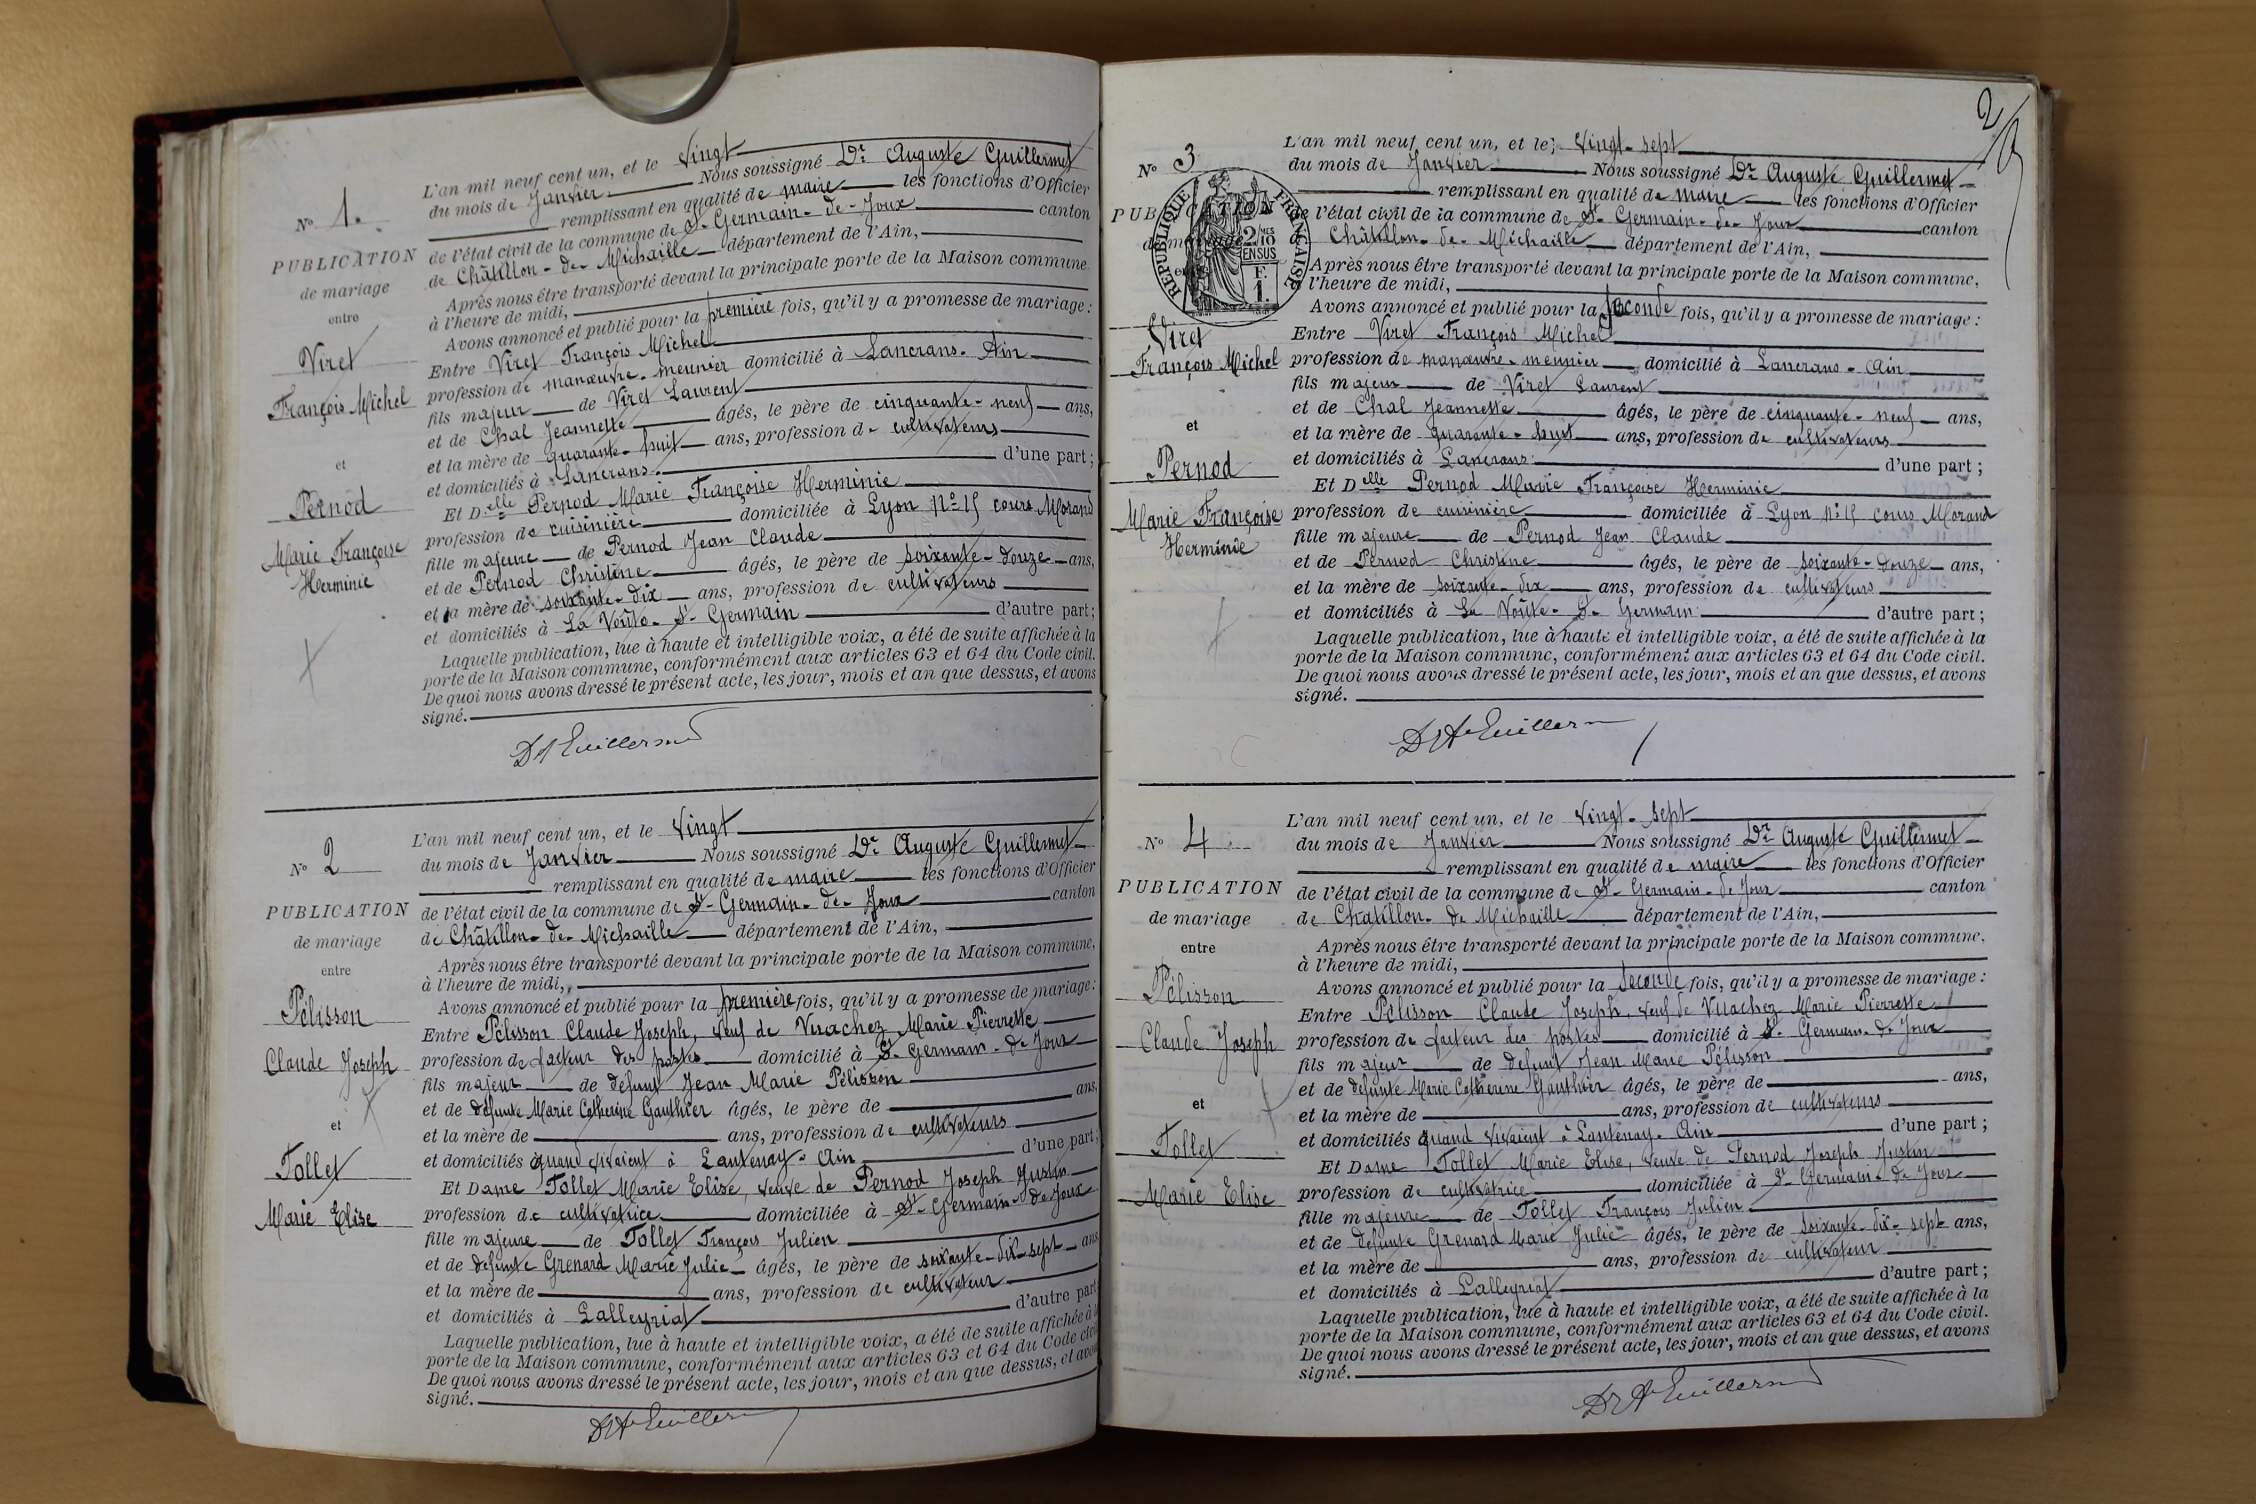 L'an mil neuf cent un, et le vingt
du mois de Janvier Nous soussigné Dr. Auguste Guillermet
remplissant en qualité de maire les fonctions d'Officier
de l'état civil de la commune de St-Germain-de-Joux canton
de Châtillon-de-Michaille département de l'Ain,
Après nous être transporté devant la principale porte de la Maison commune
à l'heure de midi,
Avons annoncé et publié pour la première fois, qu'il y a promesse de mariage :
Entre Viret François Michel
profession de manœuvre-meunier domicilié à Lancrans-Ain
fils majeur de Viret Laurent
et de Chal Jeannette âgés, le père de cinquante-neuf ans,
et la mère de quarante-huit ans, profession de cultivateurs
et domiciliés à Lancrans. d'une part ;
Et Delle Pernod Marie Françoise Herminie
profession de cuisinière domiciliée à Lyon No 15 cours Morand
fille majeure de Pernod Jean Claude
et de Pernod Christine âgés, le père de soixante-douze ans,
et la mère de soixante-dix ans, profession de cultivateurs
et domiciliés à La Voûte-St-Germain d'autre part ;
Laquelle publication, lue à haute et intelligible voix, a été de suite affichée à la
porte de la Maison commune, conformément aux articles 63 et 64 du Code civil.
De quoi nous avons dressé le présent acte, les jour, mois et an que dessus, et avons
signé.
No 1.
PUBLICATION
de mariage
entre
Viret
François Michel
et
Pernod
Marie Françoise
Herminie
No 2
PUBLICATION
de mariage
entre
Pélisson
Claude Joseph
et
Tollet
Marie Elise
L'an mil neuf cent un, et le vingt
du mois de Janvier Nous soussigné Dr. Auguste Guillermet
remplissant en qualité de maire les fonctions d'Officier
de l'état civil de la commune de St-Germain-de-Joux canton
de Châtillon-de-Michaille département de l'Ain,
Après nous être transporté devant la principale porte de la Maison commune,
à l'heure de midi,
Avons annoncé et publié pour la première fois, qu'il y a promesse de mariage :
Entre Pélisson Claude Joseph, veuf de Vuachez Marie Pierrette
profession de facteur des postes domicilié à St-Germain-de-Joux
fils majeur de défunt Jean Marie Pélisson
et de défunte Marie Catherine Gauthier âgés, le père de ans,
et la mère de ans, profession de cultivateurs
et domiciliés quand vivaient à Lantenay-Ain d'une part ;
Et Dame Tollet Marie Elise, veuve de Pernod Joseph Justin
profession de cultivatrice domiciliée à St-Germain-de-Joux
fille majeure de Tollet François Julien
et de défunte Grenard Marie Julie âgés, le père de soixante-dix-sept ans
et la mère de ans, profession de cultivateur
et domiciliés à Lalleyriat d'autre part
Laquelle publication, lue à haute et intelligible voix, a été de suite affichée à la
porte de la Maison commune, conformément aux articles 63 et 64 du Code civil
De quoi nous avons dressé le présent acte, les jour, mois et an que dessus, et avons
signé.
2
No 3
PUBLICATION
de mariage
RÉPUBLIQUE FRANÇAISE
2 MES
10
EN SUS
F.
1.
Viret
François Michel
et
Pernod
Marie Françoise
Herminie
L'an mil neuf cent un, et le vingt-sept
du mois de Janvier Nous soussigné Dr Auguste Guillermet
remplissant en qualité de maire les fonctions d'Officier
de l'état civil de la commune de St-Germain-de-Joux canton
de Châtillon-de-Michaille département de l'Ain,
Après nous être transporté devant la principale porte de la Maison commune,
l'heure de midi,
Avons annoncé et publié pour la seconde fois, qu'il y a promesse de mariage :
Entre Viret François Michel
profession de manœuvre-meunier domicilié à Lancrans-Ain
fils majeur de Viret Laurent
et de Chal Jeannette âgés, le père de cinquante-neuf ans,
et la mère de quarante-huit ans, profession de cultivateurs
et domiciliés à Lancrans. d'une part ;
Et Delle Pernod Marie Françoise Herminie
profession de cuisinière domiciliée à Lyon No 15 cours Morand
fille majeure de Pernod Jean Claude
et de Pernod Christine âgés, le père de soixante-douze ans,
et la mère de soixante-dix ans, profession de cultivateurs
et domiciliés à La Voûte-St-Germain d'autre part ;
Laquelle publication, lue à haute et intelligible voix, a été de suite affichée à la
porte de la Maison commune, conformément aux articles 63 et 64 du Code civil.
De quoi nous avons dressé le présent acte, les jour, mois et an que dessus, et avons
signé.
No 4
PUBLICATION
de mariage
entre
Pélisson
Claude Joseph
et
Tollet
Marie Elise
L'an mil neuf cent un, et le vingt-sept
du mois de Janvier Nous soussigné Dr Auguste Guillermet
remplissant en qualité de maire les fonctions d'Officier
de l'état civil de la commune de St-Germain-de-Joux canton
de Châtillon-de-Michaille département de l'Ain,
Après nous être transporté devant la principale porte de la Maison commune,
à l'heure de midi,
Avons annoncé et publié pour la seconde fois, qu'il y a promesse de mariage :
Entre Pélisson Claude Joseph, veuf de Vuachez Marie Pierrette
profession de facteur des postes domicilié à St-Germain-de-Joux
fils majeur de défunt Jean Marie Pélisson
et de défunte Marie Catherine Gauthier âgés, le père de ans,
et la mère de ans, profession de cultivateurs
et domiciliés quand vivaient à Lantenay-Ain d'une part ;
Et Dame Tollet Marie Elise, veuve de Pernod Joseph Justin
profession de cultivatrice domiciliée à St-Germain-de-Joux
fille majeure de Tollet François Julien
et de défunte Grenard Marie Julie âgés, le père de soixante-dix-sept ans,
et la mère de ans, profession de cultivateur
et domiciliés à Lalleyriat d'autre part ;
Laquelle publication, lue à haute et intelligible voix, a été de suite affichée à la
porte de la Maison commune, conformément aux articles 63 et 64 du Code civil.
De quoi nous avons dressé le présent acte, les jour, mois et an que dessus, et avons
signé.